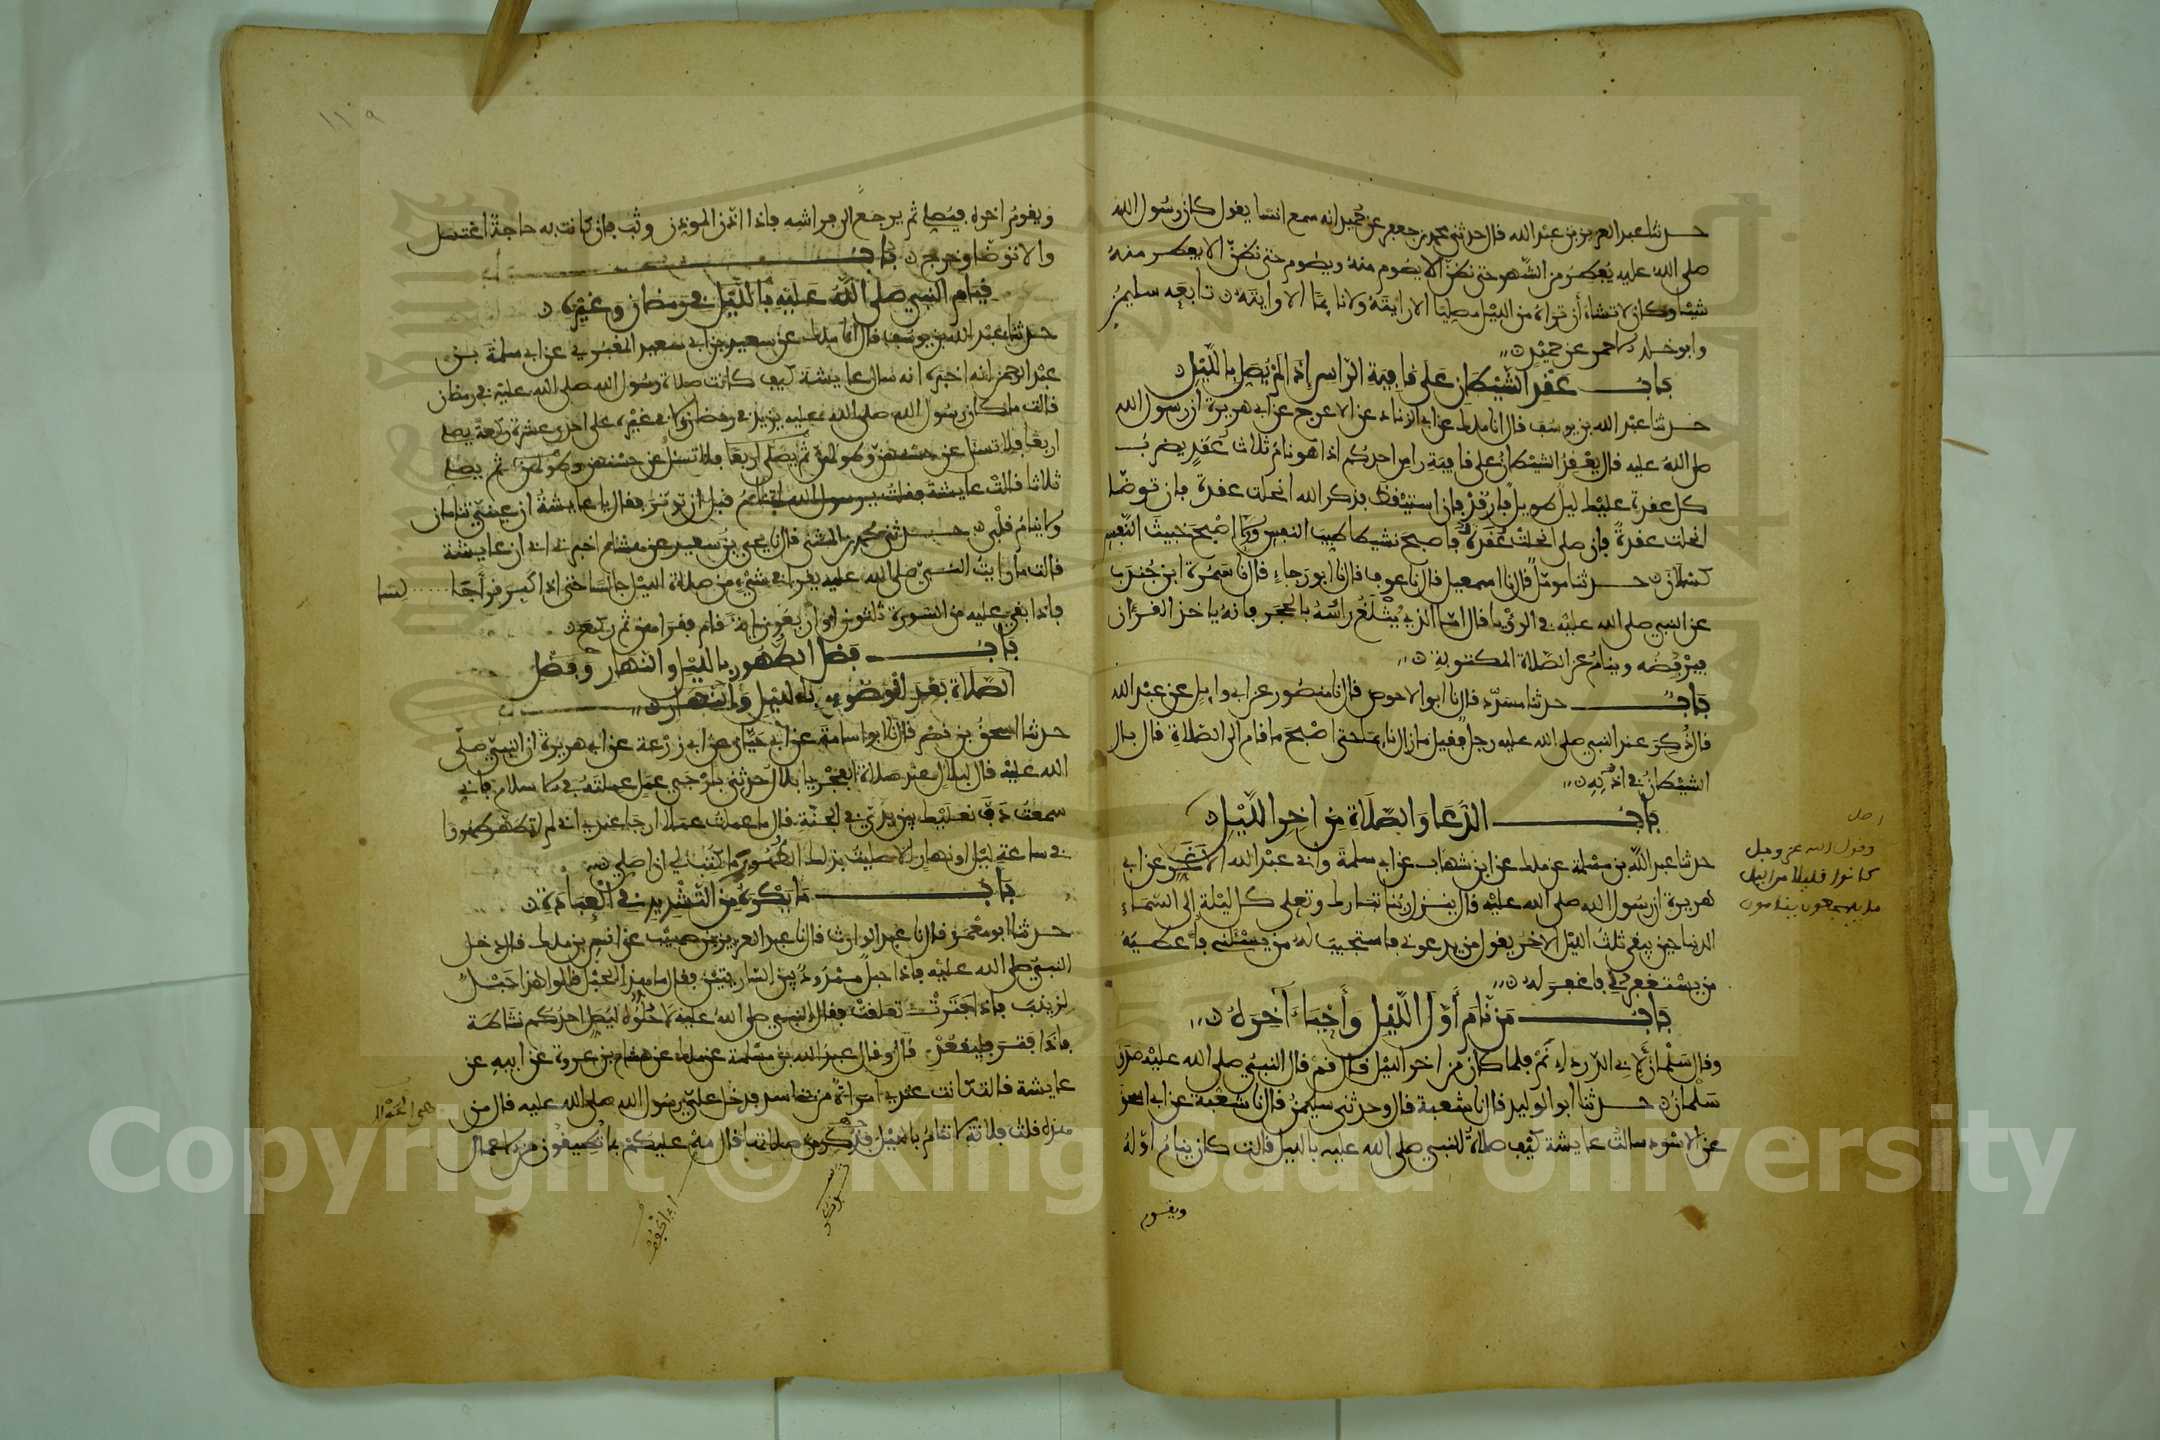 حدثنا عبد العزيز بن عبد الله قال حدثني محمد بن جعفر عن حميد انه سمع انسا يقول كان رسول الله
صلى الله عليه يفطر من الشهر حتى نظن الا يصوم منه ويصوم حتى نظن الا يفطر منه
شيئا وكان لا تشاء أن تراه من الليل مصليا الا رايته ولا نايما الا رايته تابعه سليمن
وابو خالد الاحمر عن حميد
باب عقد الشيطان على قافية الراس إذا لم يصل بالليل
حدثنا عبد الله بن يوسف قال انا ملك عن ابي الزناد عن الاعرج عن ابي هريرة أن رسول الله
صلى الله عليه قال يعقد الشيطان على قافية راس احدكم اذا هو نائم ثلاث عقد يضرب
كل عقدة عليك ليل طويل فارقد فإن استيقظ فذكر الله انحلت عقدة فإن توضا
انحلت عقدة فإن صلى انحلت عقدة فاصبح نشيطا طيب النفس وإلا اصبح خبيث النفس
كسلان حدثنا مومل قال نا اسمعيل قال نا عوف قال نا ابو رجاء قال نا سمرة ابن جندب
عن النبي صلى الله عليه في الرؤيا قال اما الذي يثلغ راسه بالحجر فانه ياخذ القرءان
فيرفضه وينام عن الصلاة المكتوبة
باب حدثنا مسدد قال نا ابو الاحوص قال نا منصور عن ابي وايل عن عبد الله
قال ذكر عند النبي صلى الله عليه رجل فقيل ما زال نايما حتى اصبح ما قام الى الصلاة قال بال
الشيطان في اذنه
باب الدعا والصلاة من اخر الليل
حدثنا عبد الله بن مسلمة عن ملك عن ابن شهاب عن ابي سلمة وابي عبد الله الاغر عن ابي
هريرة ان رسول الله صلى الله عليه قال ينزل ربنا تبارك وتعلى كل ليلة إلى السماء
الدنيا حين يبقى ثلث الليل الاخر يقول من يدعوني فاستجيب له من يسئلني فأعطيه
من يستغفرني فاغفر له
باب من نام أول الليل وأحيا آخره
وقال سلمان لابي الدرداء نم فلما كان من اخر الليل قال قم قال النبي صلى الله عليه صدق
سلمان حدثنا أبو الوليد قال نا شعبة قال وحدثني سليمن قال نا شعبة عن ابي اسحق
عن الاسود سالت عايشة كيف صلاة النبي صلى الله عليه بالليل قالت كان ينام اوله
ويقوم
وقول الله عز وجل
كانوا قليلا من الليل
ما يهجعون ينامون
١١٩
ويقوم اخره فيصلي ثم يرجع الى فراشه فاذا اذن المؤذن وثب فإن كانت به حاجة اغتسل
والا توضا وخرج باب
قيام النبي صلى الله عليه بالليل في رمضان وغيره
حدثنا عبد الله بن يوسف قال انا ملك عن سعيد بن ابي سعيد المقبري عن ابي سلمة بن
عبد الرحمن انه اخبره انه سال عايشة كيف كانت صلاة رسول الله صلى الله عليه في رمضان
قالت ما كان رسول الله صلى الله عليه يزيد في رمضان ولا في غيره على احدى عشرة ركعة يصلي
اربعا فلا تسئل عن حسنهن وطولهن ثم يصلي اربعا فلا تسئل عن حسنهن وطولهن ثم يصلي
ثلاثا قالت عايشة فقلت يرسول الله اتنام قبل ان توتر فقال يا عايشة ان عيني تنامان
ولا ينام قلبي حدثني محمد بن المثنى قال نا يحيى بن سعيد عن هشام اخبرني ابي ان عايشة
قالت ما رايت النبي صلى الله عليه يقرا في شيء من صلاة الليل جالسا حتى اذا كبر قرأ جالسا
فاذا بقي عليه من السورة ثلثون او اربعون اية قام فقراهن ثم ركع
باب فضل الطهور بالليل والنهار وفضل
الصلاة بعد الوضوء بالليل والنهار
حدثنا اسحق بن نصر قال نا ابو اسامة عن ابي حيان عن ابي زرعة عن ابي هريرة ان النبي صلى
الله عليه قال لبلال عند صلاة الفجر يا بلال حدثني بارجى عمل عملته في الاسلام فاني
سمعت دف نعليك بين يدي في الجنة قال ما عملت عملا ارجا عندي اني لم اتطهر طهورا
في ساعة ليل او نهار الا صليت بذلك الطهور ما كتب لي ان اصلي
باب ما يكره من التشديد في العبادة
حدثنا ابو معمر قال نا عبد الوارث قال نا عبد العزيز بن صهيب عن انس بن ملك قال دخل
النبي صلى الله عليه فاذا حبل ممدود بين الساريتين فقال ما هذا الحبل قالوا هذا حبل
لزينب فاذا فترت تعلقت فقال النبي صلى الله عليه لا حلوه ليصل احدكم نشاطه
فاذا فتر فليقعد قال وقال عبد الله بن مسلمة عن ملك عن هشام بن عروة عن ابيه عن
عايشة قالت كانت عندي امراة من بني اسد فدخل علي رسول الله صلى الله عليه قال من
هذه قلت فلانة لا تنام بالليل فذكر من صلاتها قال مه عليكم ما تطيقون من الاعمال